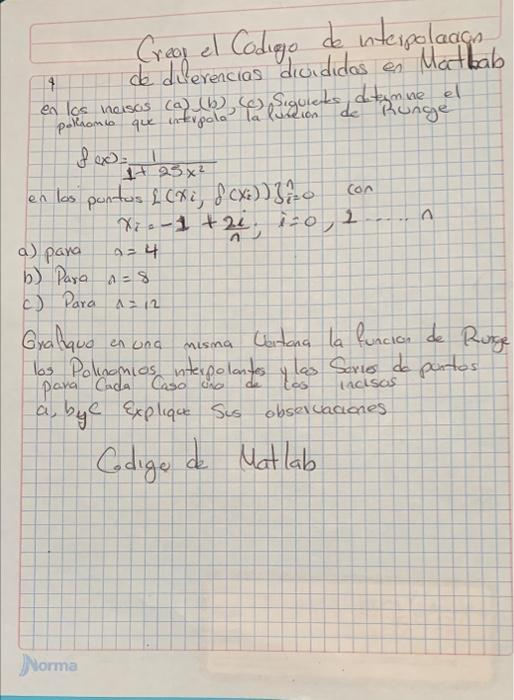 Crear el Codigo de interpolacion
de diferencias divididas en Matlab
en los incisos (a), (b), (c), Siguientes, determine el
polinomio que interpola la funcion de Runge
f(x) = 1 / 1 + 25x²
en los puntos {(xi, f(xi))}ⁿi=0 con
xi = -1 + 2i/n, i=0, 1 ..... n
a) para n = 4
b) Para n = 8
c) Para n = 12
Grafique en una misma Ventana la funcion de Runge
los Polinomios interpolantes y las Series de puntos
para Cada Caso uno de los incisos
a, b y c Explique Sus observaciones
Codigo de Matlab
Norma